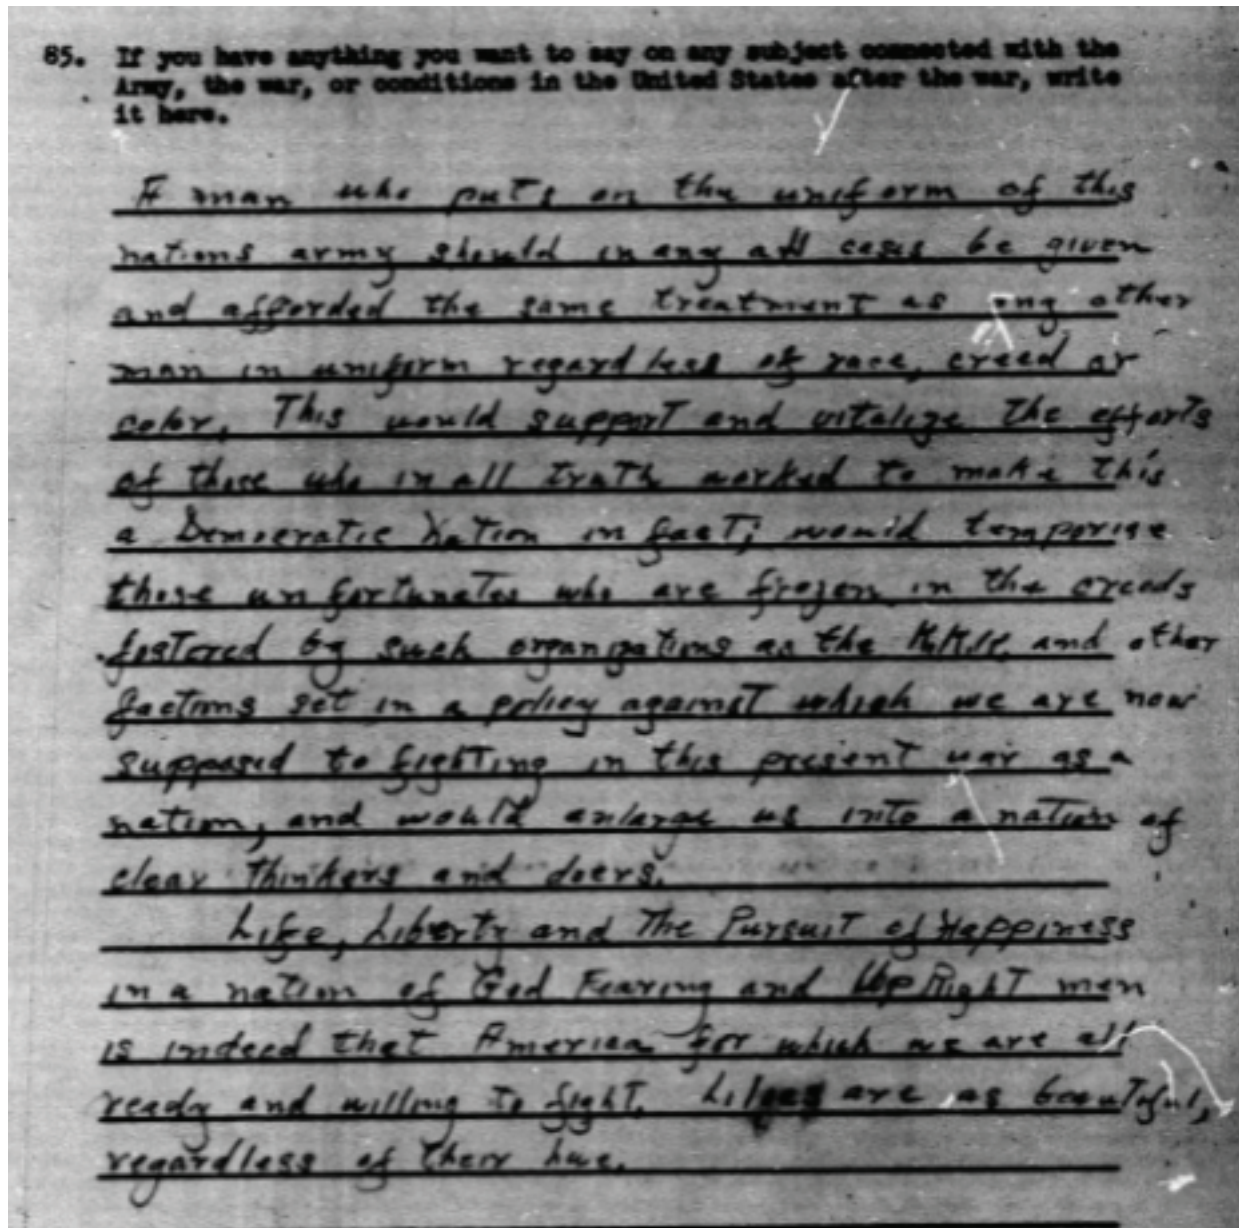 85. If you have anything you want to say on any subject connected with the
Army, the war, or conditions in the United States after the war, write
it here.
A man who puts on the uniform of this
nations army should in any all cases be given
and afforded the same treatment as any other
man in uniform regardless of race, creed or
color. This would support and vitalize the efforts
of those who in all truth worked to make this
a Democratic Nation in fact; would temporise
those unfortunates who are frozen in the creeds
fostered by such organizations as the K.K.K. and other
factions set in a policy against which we are now
supposed to fighting in this present war as a
nation, and would enlarge us into a nation of
clear thinkers and doers.
Life, Liberty and The Pursuit of Happiness
in a nation of God Fearing and UpRight men
is indeed that America for which we are all
ready and willing to fight. Lilies are as beautiful,
regardless of their hue.